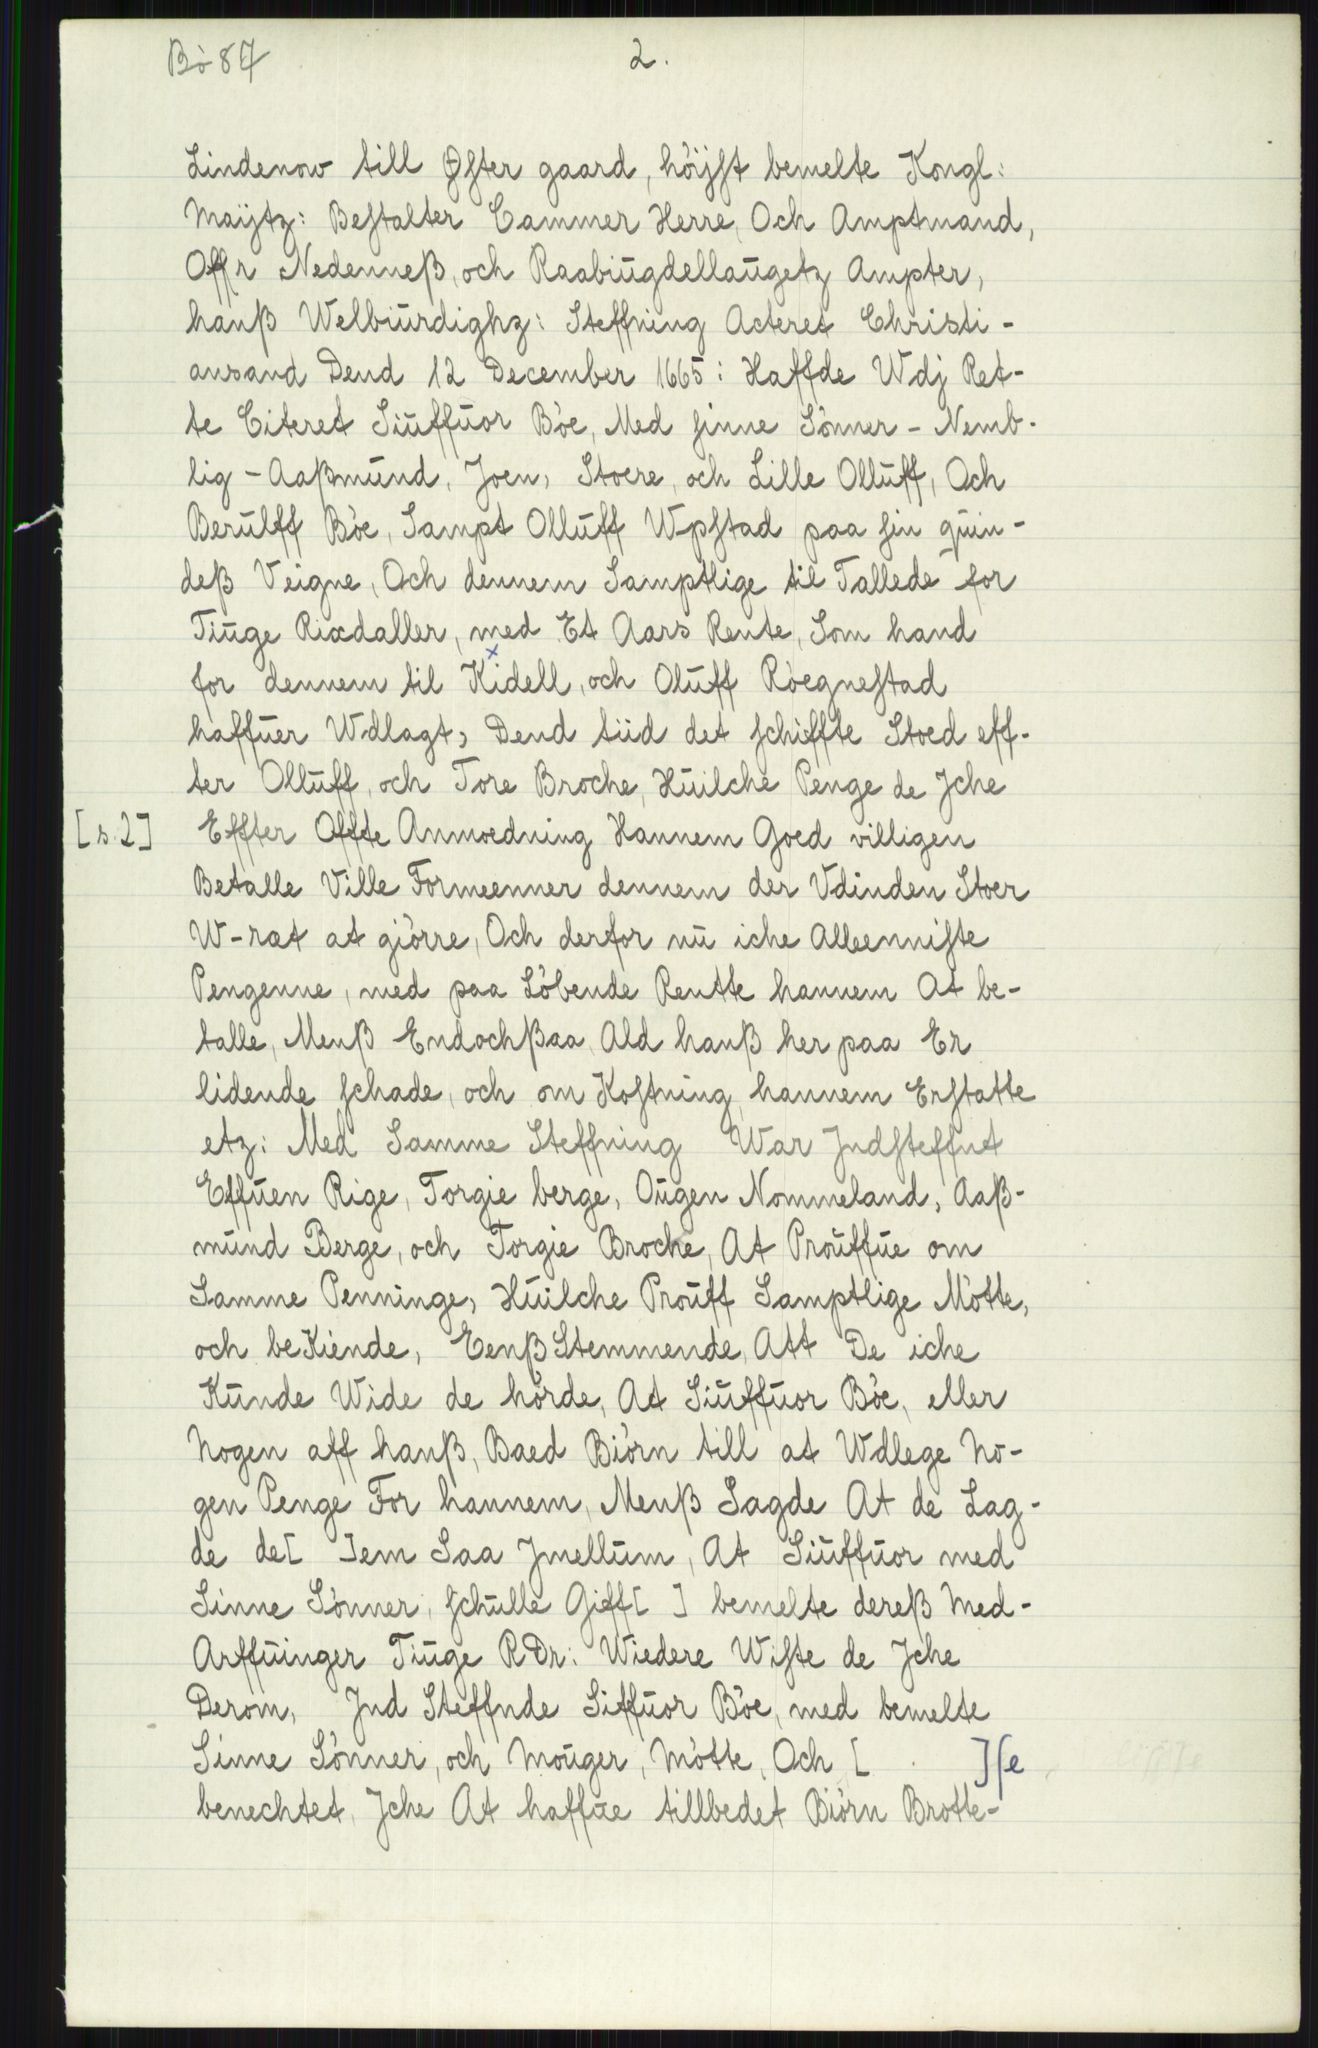 Bò 87
2.
Lindenow till Øster gaard, höijst bemelte Kongl:
Maijtz: Bestalter Cammer Herre, Och Amptmand,
Offr Nedenneß, och Raabiugdellaugetz Ampter,
hanß Welbiurdighz: Steffning Acteret Christi-
ansand Dend 12 December 1665: Haffde Wdj Ret-
te Citeret Siuffuor Böe, Med sinne Sönner - Nemb-
lig - Aaßmund, Joen, Stoere, och Lille Olluff, Och
Berulff Böe, Sampt Olluff Wpstad paa sin quin-
deß Veigne, Och dennem Samptlige til Tallede for
Tiuge Rixdaller, med Et Aars Rente, Som hand
for dennem til Kidell, och Oluff Röegnestad
haffuer Wdlagt, Dend tiid det schiffte Stoed eff-
ter Olluff, och Tore Broche, Huilche Penge de Jche
[s. 2] Effter Offte Anmoedning Hannem Goed villigen
Betalle Ville Formeenner dennem der Vdinden Stoer
W-ræt at giörre, Och derfor nu iche Alleenniste
Pengenne, med paa Löbende Rentte hannem At be-
talle, Menß Endochßaa Ald hanß her paa Er
lidende schade, och om Kostning hannem Erstatte
etz: Med Samme Steffning War Jndsteffnet
Effuen Rige, Torgie berge, Ougen Nommeland, Aaß-
mund Berge, och Torgie Broche, At Prouffue om
Samme Penninge, Huilche Prouff Samptlige Mötte,
och beKiende, EenßStemmende, Att De iche
Kunde Wide de hörde, At Siuffuor Böe, eller
Nogen aff hanß, Baed Biörn till at Wdlege No-
gen Penge For hannem, Menß Sagde At de Lag-
de de[ ]em Saa Jmellum, At Siuffuor med
Sinne Sönner, schulle Giff[ ] bemelte dereß Med-
Arffuinger Tiuge RDr: Wiedere Wiste de Jche
Derom, Jnd Steffnde Siffuor Böe, med bemelte
Sinne Sönner, och Mouger, Mötte, Och [ ]se
benechtet, Jche At haffue tillbedet Biörn Brotte-